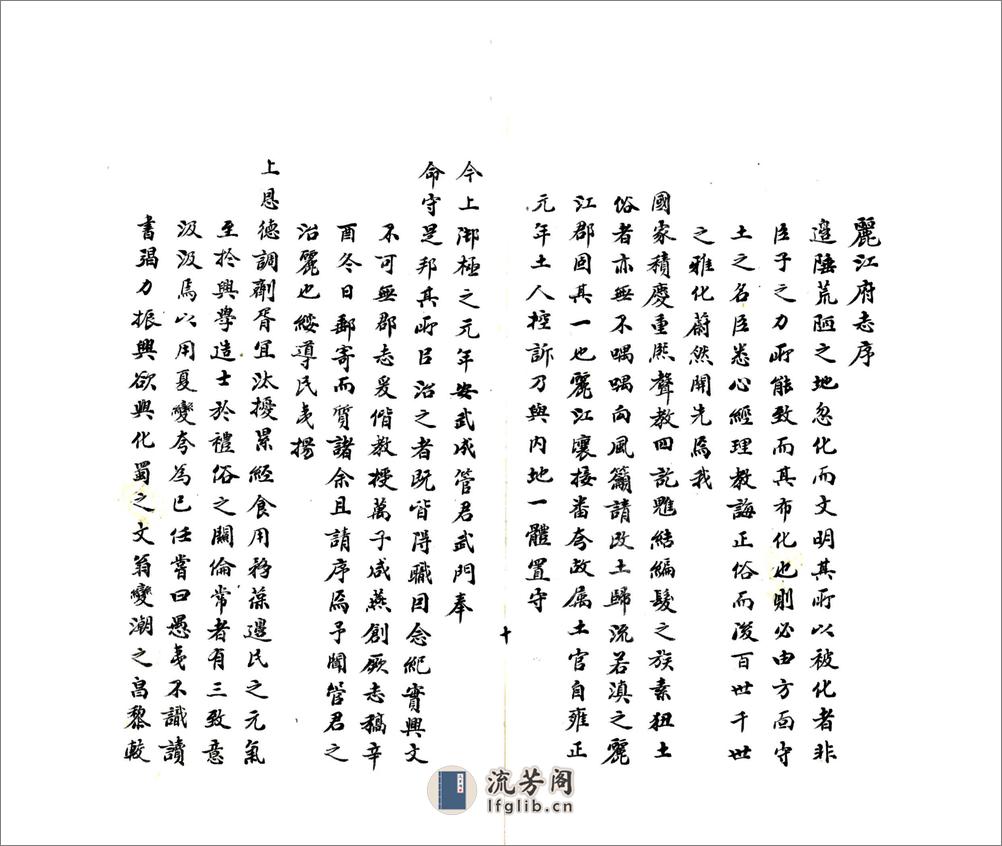 麗江府志序
邊陲荒陋之地忽化而文明其所以被化者非
臣子之力所能致而其布化也則必由方面守
土之名臣悉心經理教誨正俗而後百世千世
之雅化蔚然開先焉我
國家積慶重熙聲教四訖雖結編髮之族素狃土
俗者亦無不喁喁向風籲請改土歸流若滇之麗
江郡固其一也麗江壤接番夸故属土官自雍正
元年土人控訴乃與內地一體置守
十
今上御極之元年安武成管君武門奉
命守是邦其所臣治之者既皆得職因念紀實興文
不可無郡志爰偕教授萬子咸燕創厥志稿辛
酉冬日郵寄而質諸余且請序焉予聞管君之
治麗也綏導民夷揚
上恩德調劑胥宜汰擾累經食用務葆邊民之元氣
至於興學造士於禮俗之關倫常者有三致意
汲汲焉以用夏變夸為己任嘗曰愚夷不識讀
書竭力振興欲興化蜀之文翁變潮之昌黎較
流芳阁
lfglib.cn